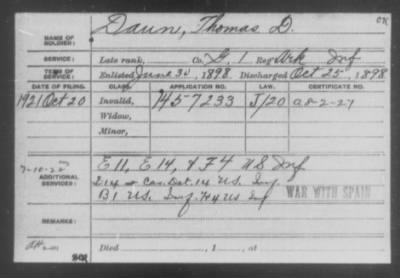 Daun, Thomas D. OK
NAME OF SOLDIER:
SERVICE: Late rank, Co. G, 1 Reg Ark Inf
TERM OF SERVICE: Enlisted June 30, 1898. Discharged Oct 25, 1898
DATE OF FILING. CLASS. APPLICATION NO. LAW. CERTIFICATE NO.
1921 Oct 20 Invalid, 1457233 J/20 a8-2-27
Widow,
Minor,
7-10-22 E 11, E 14, & F 4 U S Inf
ADDITIONAL SERVICES: I 14 & Cas. Det. 14 U.S. Inf.
B 1 U.S. Inf. H 4 US Inf WAR WITH SPAIN
REMARKS:
Died , 1 , at